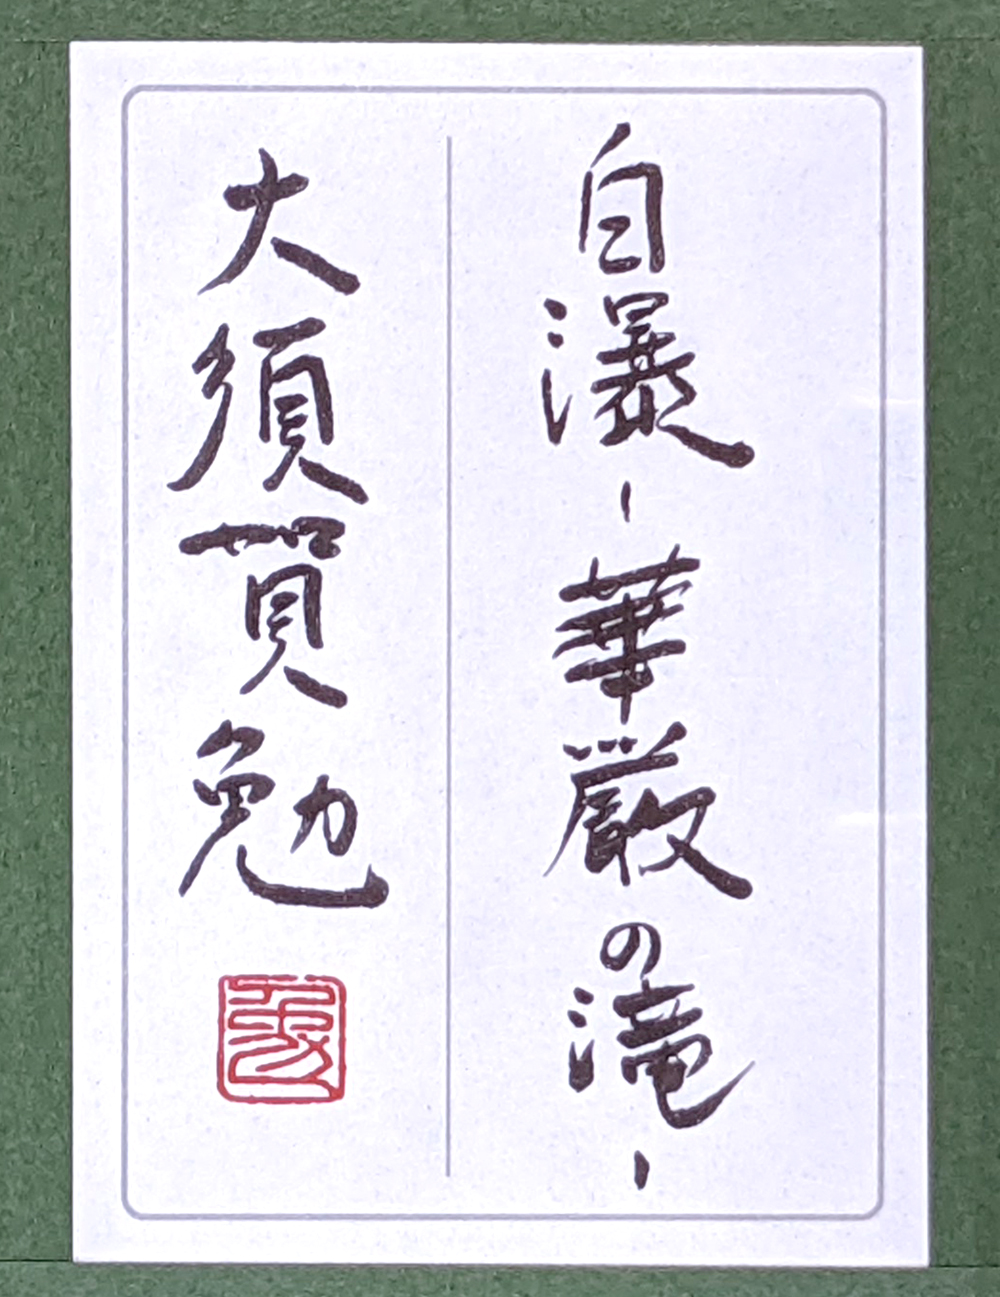 白瀑-華厳の滝-
大須賀勉